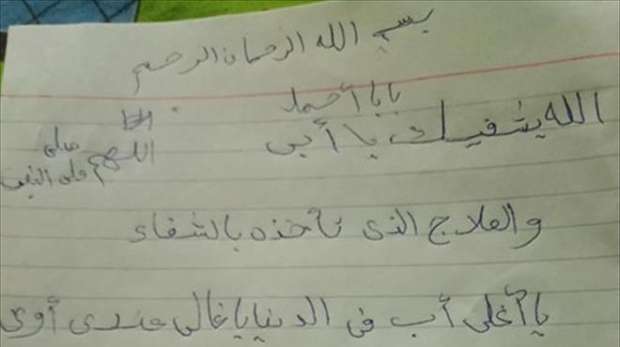 بسم الله الرحمان الرحيم
بابا أحمد
الله يشفيك يا أبى
اللهم صلى على النبى
والعلاج الذى تأخذه بالشفاء
يا أغلى أب فى الدنيا يا غالى عندى أوى